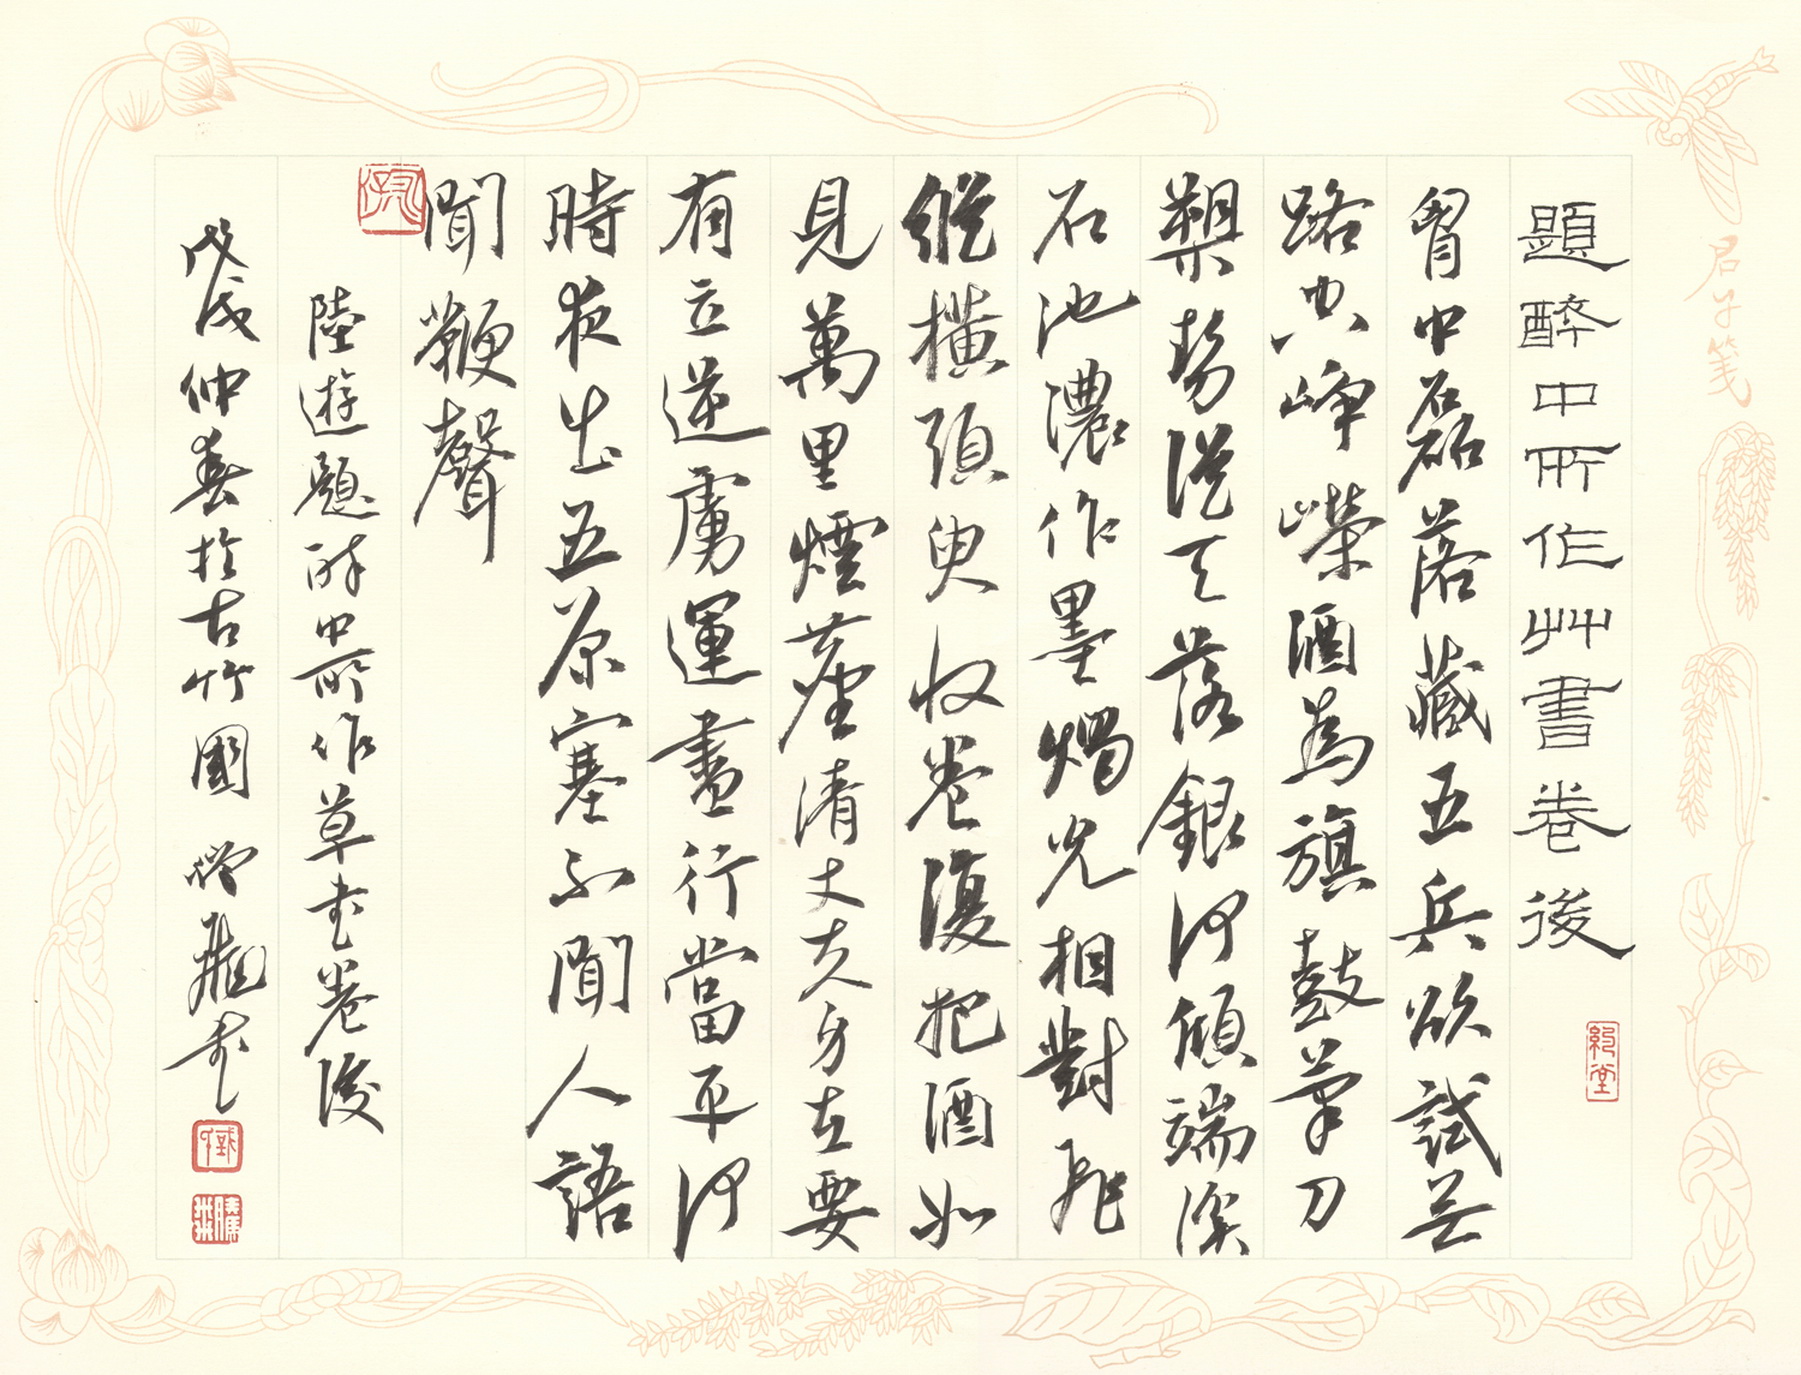 君子箋
題醉中所作艸書卷後
胷中磊落藏五兵欲試無
路空崢嶸酒為旗鼓筆刀
槊勢從天落銀河傾端溪
石池濃作墨燭光相對飛
縱橫須臾收卷復把酒如
見萬里煙塵清丈夫身在要
有立逆虜運盡行當平何
時夜出五原塞不聞人語
聞鞭聲
陸遊題醉中所作草書卷後
戊戌仲春於古竹園
約堂